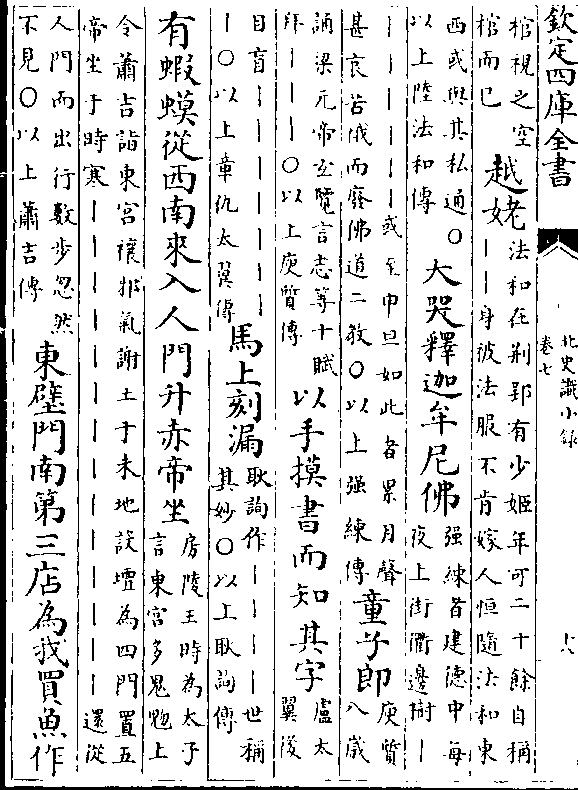 欽定四庫全書
北史識小錄
卷七
棺視之空
棺而已
越姥
法和在荆郢有少姬年可二十餘自稱
——身被法服不肯嫁人恒隨法和東
西或與其私通〇
以上陸法和傳
大哭釋迦牟尼佛
强練首建德中每
夜上街衢邊樹—
——————或至申旦如此者累月聲
甚哀苦俄而廢佛道二教〇以上强練傳
童子郎
庾質
八歲
誦梁元帝玄覽言志等十賦
拜———〇以上庾質傳
以手摸書而知其字
盧太
翼後
目盲———————
—〇以上章仇太翼傳
馬上刻漏
耿詢作————世稱
其妙〇以上耿詢傳
有蝦蟆從西南來入人門升赤帝坐
房陵王時為太子
言東宮多鬼魅上
令蕭吉詣東宮禳邪氣謝土于未地設壇為四門置五
帝坐于時寒—————————————還從
人門而出行數步忽然
不見〇以上蕭吉傳
東壁門南第三店為我買魚作